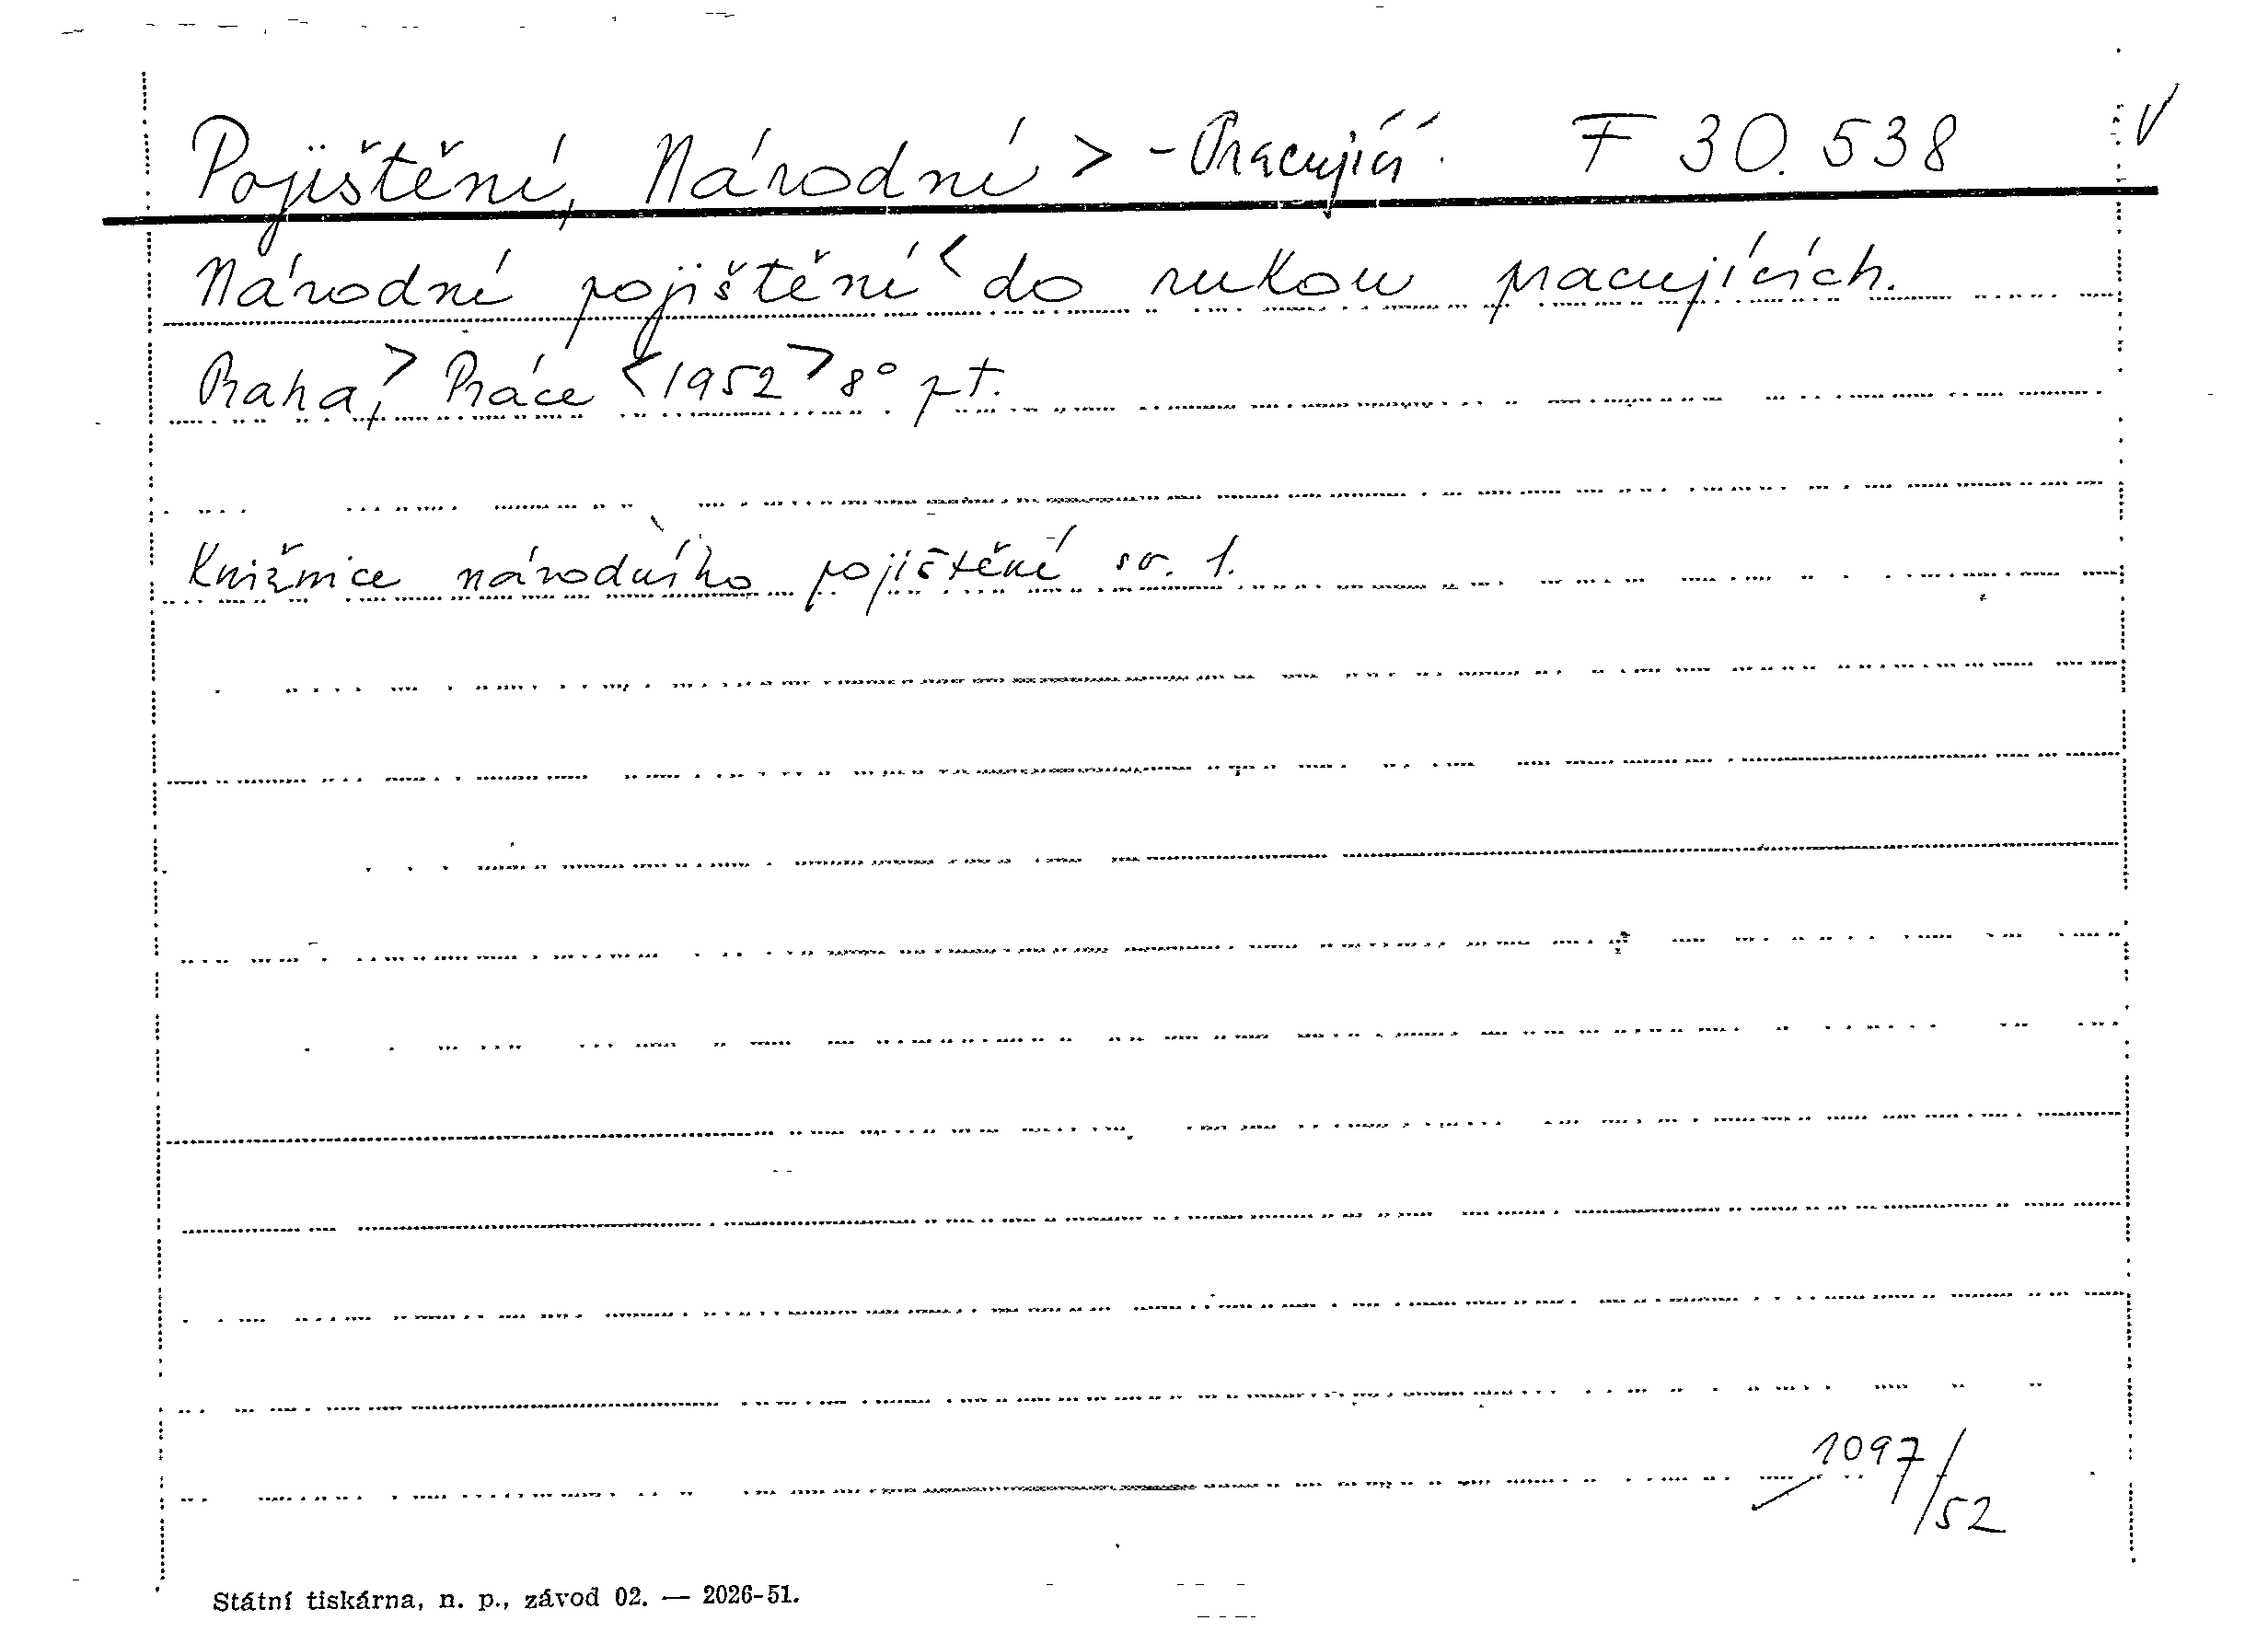 Pojištění, Národní > - Pracující. F 30.538 V
Národní pojištění < do rukou pracujících.
Praha, > Práce < 1952 > 8° pt.
Knižnice národního pojištění sv. 1.
1097/52
Státní tiskárna, n. p., závod 02. — 2026-51.